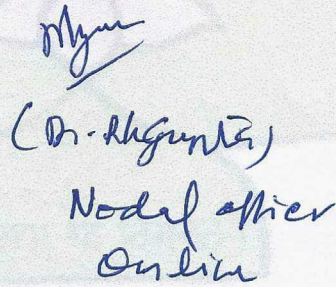 (Dr. RKGupta)
Nodal officer
Online